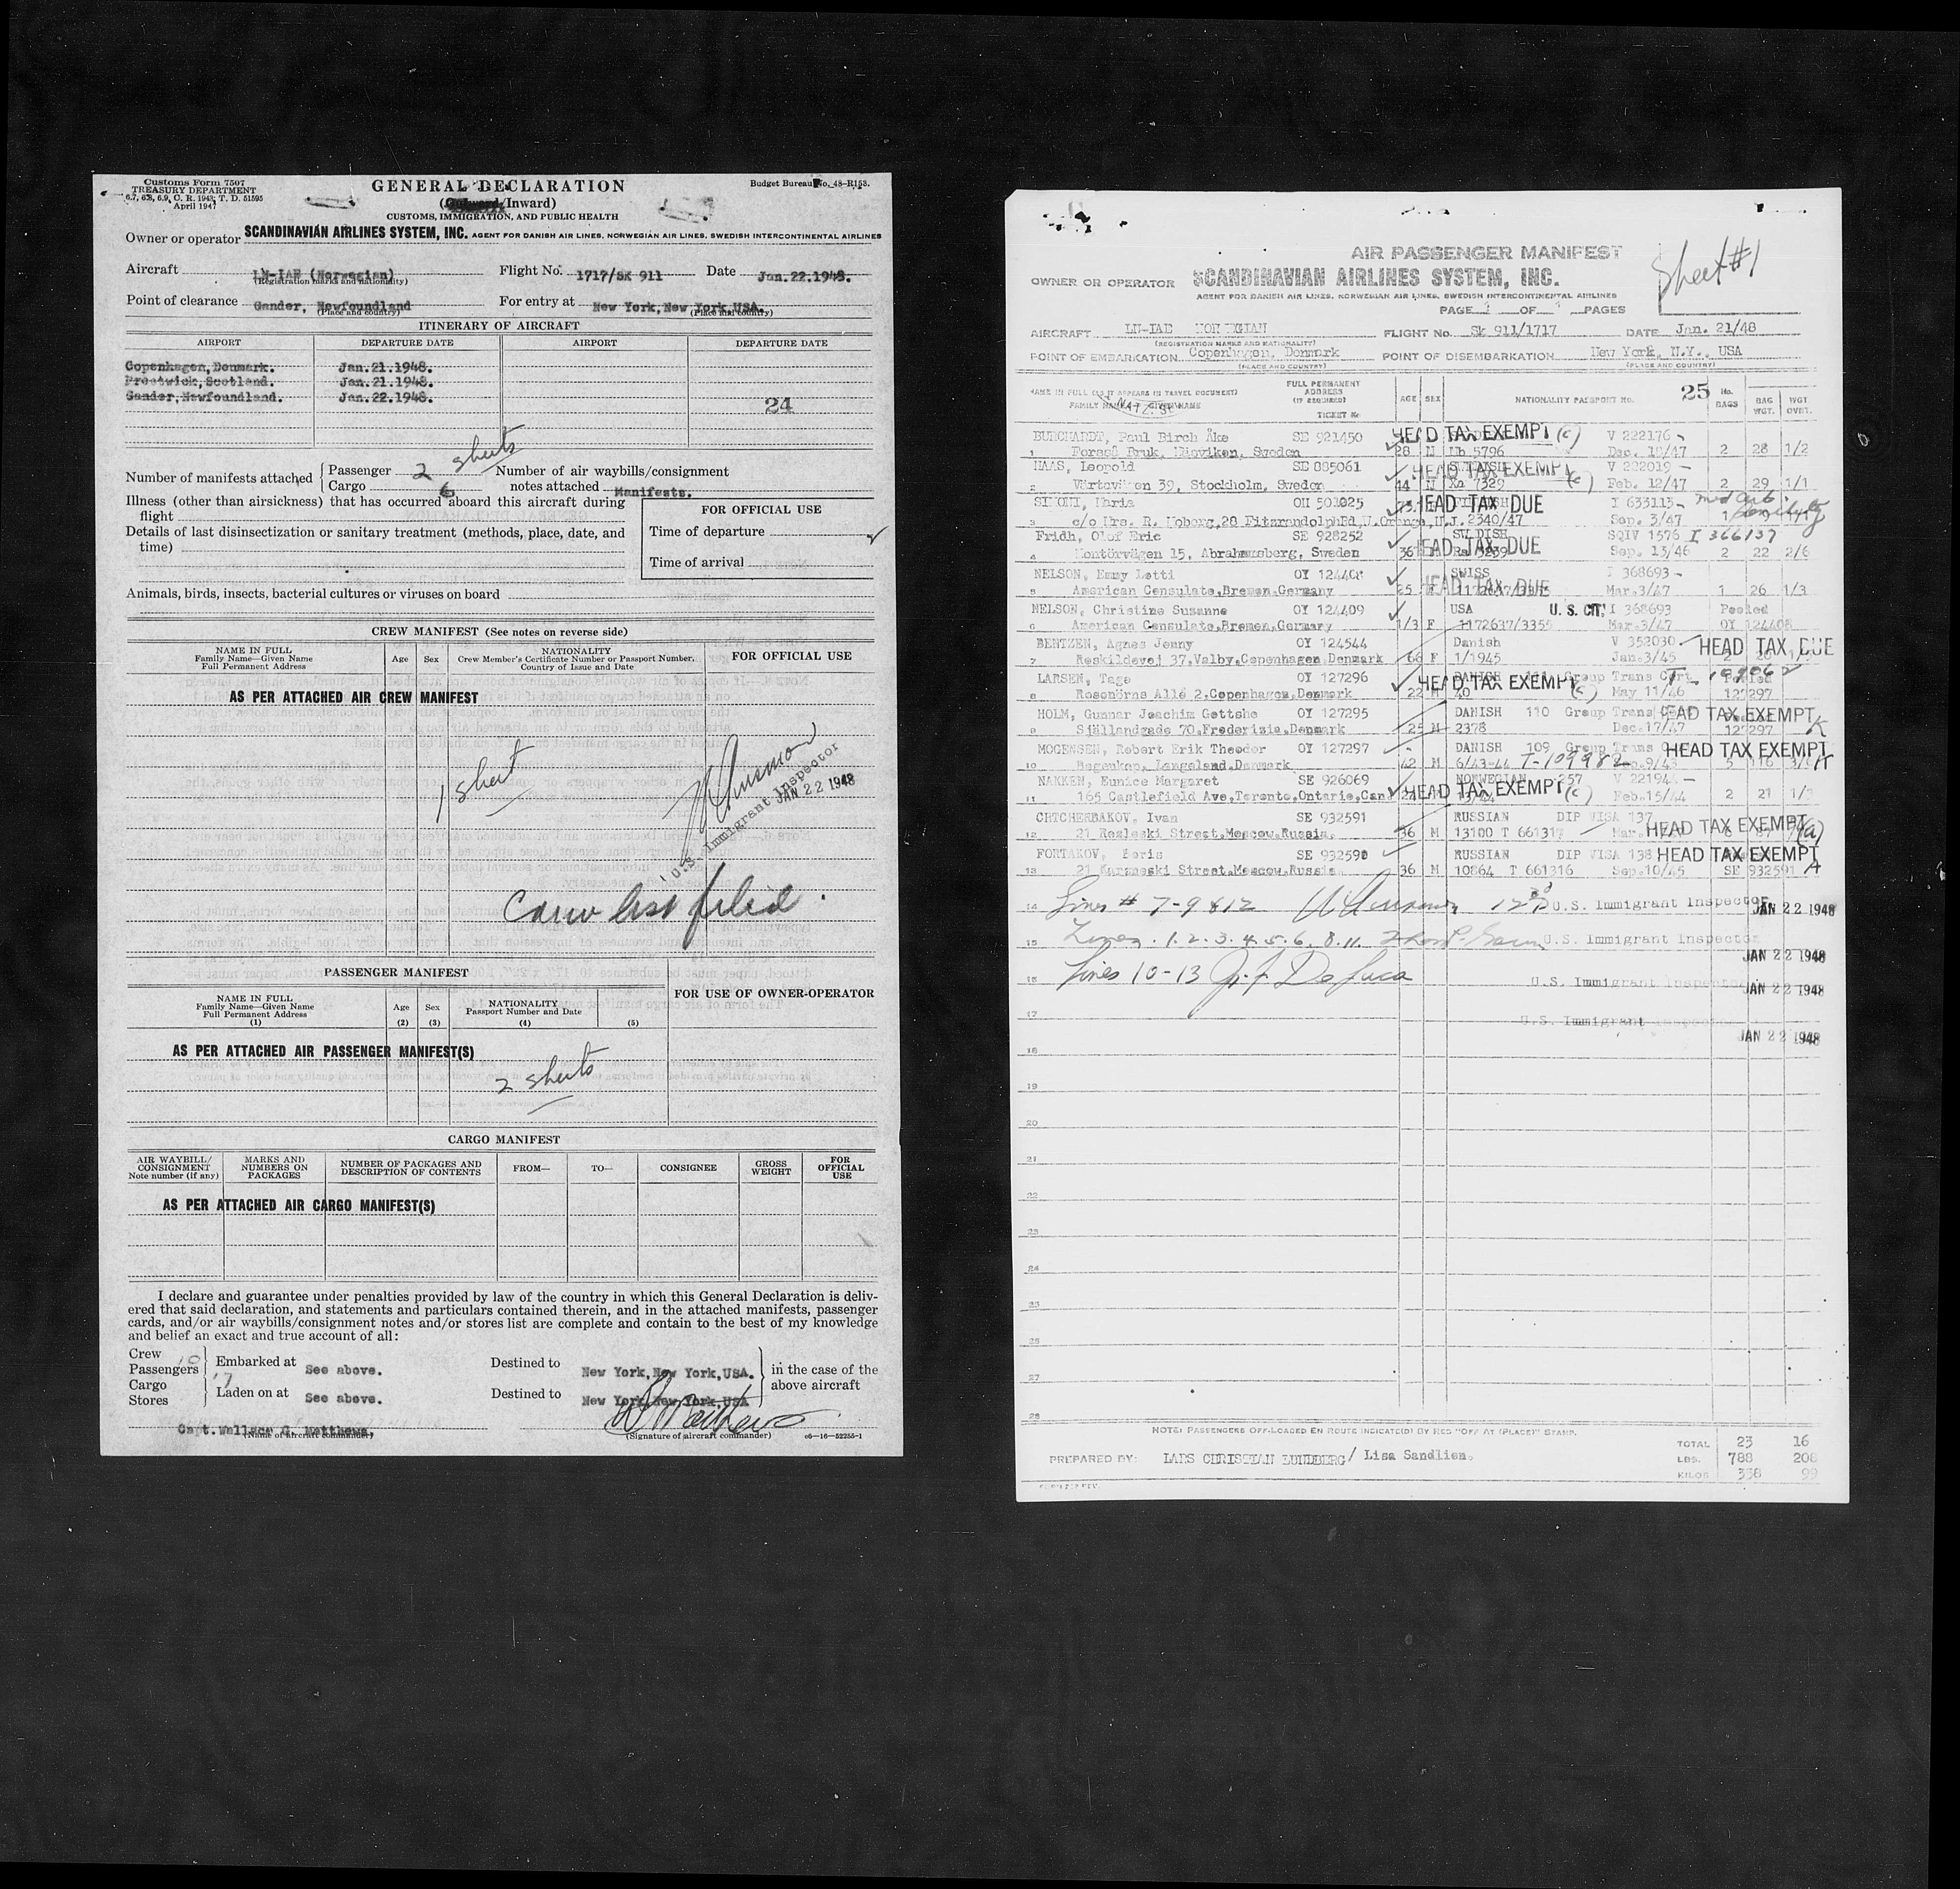 Customs Form 7507
TREASURY DEPARTMENT
6.7, 6.8, 6.9, C. R. 1943; T. D. 51595
April 1947
GENERAL DECLARATION
(Outward/Inward)
CUSTOMS, IMMIGRATION, AND PUBLIC HEALTH
Budget Bureau No. 48-R153.
Owner or operator SCANDINAVIAN AIRLINES SYSTEM, INC. AGENT FOR DANISH AIR LINES, NORWEGIAN AIR LINES, SWEDISH INTERCONTINENTAL AIRLINES
Aircraft LN-IAE (Norwegian) Flight No. 1717/SK 911 Date Jan.22.1948.
(Registration marks and nationality)
Point of clearance Gander, Newfoundland For entry at New York,New York,USA.
(Place and country) (Place and country)
ITINERARY OF AIRCRAFT
AIRPORT DEPARTURE DATE AIRPORT DEPARTURE DATE
Copenhagen,Denmark. Jan.21.1948.
Prestwick,Scotland. Jan.21.1948.
Gander,Newfoundland. Jan.22.1948. 24
Number of manifests attached Passenger 2 sheets Number of air waybills/consignment
Cargo 6 notes attached Manifests.
Illness (other than airsickness) that has occurred aboard this aircraft during
flight
FOR OFFICIAL USE
Details of last disinsectization or sanitary treatment (methods, place, date, and
time)
Time of departure
Time of arrival
Animals, birds, insects, bacterial cultures or viruses on board
CREW MANIFEST (See notes on reverse side)
NAME IN FULL
Family Name—Given Name
Full Permanent Address
Age Sex
NATIONALITY
Crew Member's Certificate Number or Passport Number,
Country of Issue and Date
FOR OFFICIAL USE
AS PER ATTACHED AIR CREW MANIFEST
1 sheet
U.S. Immigrant Inspector
JAN 22 1948
Crew list filed.
PASSENGER MANIFEST
NAME IN FULL
Family Name—Given Name
Full Permanent Address
(1)
Age
(2)
Sex
(3)
NATIONALITY
Passport Number and Date
(4)
(5)
FOR USE OF OWNER-OPERATOR
AS PER ATTACHED AIR PASSENGER MANIFEST(S)
2 sheets
CARGO MANIFEST
AIR WAYBILL/
CONSIGNMENT
Note number (if any)
MARKS AND
NUMBERS ON
PACKAGES
NUMBER OF PACKAGES AND
DESCRIPTION OF CONTENTS
FROM—
TO—
CONSIGNEE
GROSS
WEIGHT
FOR
OFFICIAL
USE
AS PER ATTACHED AIR CARGO MANIFEST(S)
I declare and guarantee under penalties provided by law of the country in which this General Declaration is deliv-
ered that said declaration, and statements and particulars contained therein, and in the attached manifests, passenger
cards, and/or air waybills/consignment notes and/or stores list are complete and contain to the best of my knowledge
and belief an exact and true account of all:
Crew 10
Passengers 17
Cargo
Stores
Embarked at See above. Destined to New York,New York,USA.
Laden on at See above. Destined to New York,New York,USA
in the case of the
above aircraft
Capt.Wallace G. Matthews.
(Name of aircraft commander)
(Signature of aircraft commander) c6—16—52255-1
AIR PASSENGER MANIFEST
Sheet #1
OWNER OR OPERATOR SCANDINAVIAN AIRLINES SYSTEM, INC.
AGENT FOR DANISH AIR LINES, NORWEGIAN AIR LINES, SWEDISH INTERCONTINENTAL AIRLINES
PAGE 1 OF PAGES
AIRCRAFT LN-IAE NORWEGIAN FLIGHT No. Sk 911/1717 DATE Jan. 21/48
(REGISTRATION MARKS AND NATIONALITY)
POINT OF EMBARKATION Copenhagen, Denmark POINT OF DISEMBARKATION New York, N.Y., USA
(PLACE AND COUNTRY) (PLACE AND COUNTRY)
NAME IN FULL (AS IT APPEARS IN TRAVEL DOCUMENT)
FAMILY NAME GIVEN NAME
FULL PERMANENT
ADDRESS
(IF REQUIRED)
TICKET No
AGE SEX NATIONALITY PASSPORT No. 25 No. BAGS BAG WGT. WGT OVRT.
BURCHARDT, Paul Birch Åke SE 921450 HEAD TAX EXEMPT (c) V 222176
1 Forsså Bruk, Näsviken, Sweden 28 M Ub 5796 Dec. 18/47 2 28 1/2
HAAS, Leopold SE 885061 HEAD TAX EXEMPT (c) V 222019
2 Värtavägen 39, Stockholm, Sweden 44 M Xa 7329 Feb. 12/47 2 29 1/1
Maria OH 501025 HEAD TAX DUE I 633113
3 c/o Mrs. R. Moberg,28 Fitzrandolph Rd,W.Orange,N.J. 2340/47 Sep. 3/47 1
Fridh, Olof Eric SE 928252 SWEDISH HEAD TAX DUE SQIV 1576 I 366137
4 Kontörvägen 15, Abrahamsberg, Sweden 36 Ra 5239 Sep. 13/46 2 22 2/6
NELSON, Emmy Letti OY 124408 SWISS HEAD TAX DUE I 368693
5 American Consulate,Bremen,Germany 25 F Mar.3/47 1 26 1/3
NELSON, Christine Suzanne OY 124409 USA U. S. CIT. I 368693 Pooled
6 American Consulate,Bremen,Germany 1/3 F 1172637/3355 Mar.3/47 OY 124408
BENTZEN, Agnes Jenny OY 124544 Danish V 352030 HEAD TAX DUE
7 Roskildevej 37,Valby,Copenhagen,Denmark 66 F 1/1945 Jan.3/45 2
LARSEN, Tage OY 127296 HEAD TAX EXEMPT (c) Group Trans Cert
8 Rosenörns Allé 2,Copenhagen,Denmark 22 M 40 May 11/46 127297
HOLM, Gunnar Joachim Gottshe OY 127295 DANISH 110 Group Trans HEAD TAX EXEMPT
9 Själlandsgade 70,Frederizia,Denmark 25 M 2378 Dec.17/47 127297
MOGENSEN, Robert Erik Theodor OY 127297 DANISH 109 Group Trans HEAD TAX EXEMPT
10 Bøgeukov,Langeland,Denmark 42 M 6/43-44 T-109982 9/43 5 116
NAKKEN, Eunice Margaret SE 926069 NORWEGIAN 257 HEAD TAX EXEMPT (c) V 22194
11 165 Castlefield Ave,Toronto,Ontario,Can Feb.15/44 2 21
CHTCHERBAKOV, Ivan SE 932591 RUSSIAN DIP VISA 137 HEAD TAX EXEMPT (a)
12 Street,Moscow,Russia. 36 M 13100 T 661317 Mar.
FORTAKOV, Boris SE 932590 RUSSIAN DIP VISA 138 HEAD TAX EXEMPT
13 21 Street,Moscow,Russia 36 M 10864 T 661316 Sep.10/45 SE 932591 A
14 Lines # 7-9 & 12 U.S. Immigrant Inspector JAN 22 1948
15 Lines . 1. 2. 3. 4. 5. 6. 8. 11. U.S. Immigrant Inspector JAN 22 1948
16 Lines 10-13 J. J. DeLuca U.S. Immigrant Inspector JAN 22 1948
17 U.S. Immigrant JAN 22 1948
18
19
20
21
22
23
24
25
26
27
28
NOTE: PASSENGERS OFF-LOADED EN ROUTE INDICATE(D) BY RED "OFF AT (PLACE)" STAMP.
PREPARED BY: LARS CHRISTIAN LUNDBERG/ Lisa Sandlien.
TOTAL 23 16
LBS. 788 208
KILOS 358 99